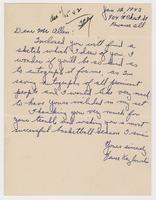 Jan. 12, 1943
Dear Mr. Allen:
Enclosed you will find a
sketch which I drew of you. I
wonder if you'll be so kind as
to autograph it for me, as I'm
saving autographs of all prominent
people and I would like very much
to have yours included in my set.
Thanking you very much for
your trouble and wishing you a most
successful basketball season, I remain
Yours sincerely,